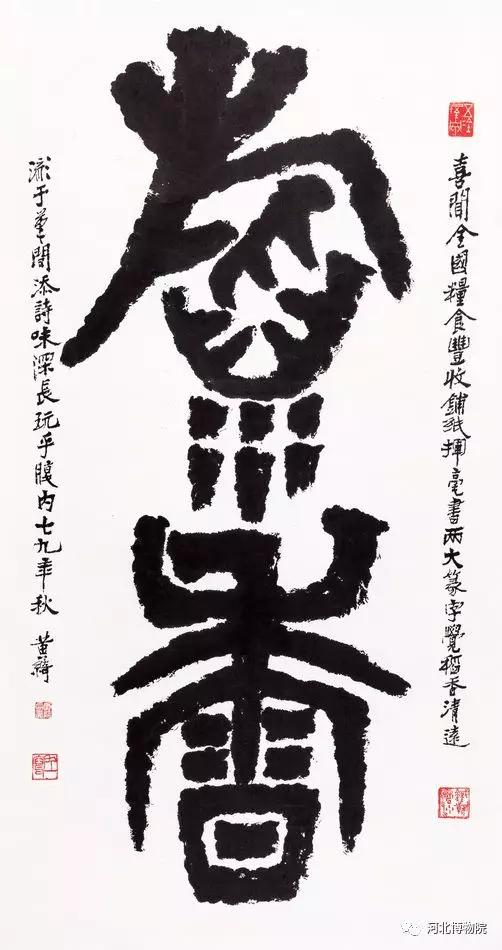 稻香
喜聞全國糧食豐收鋪紙揮毫書兩大篆字覺稻香清遠
流于間添詩味深長玩乎腹内七九年秋 黃綺
河北博物院